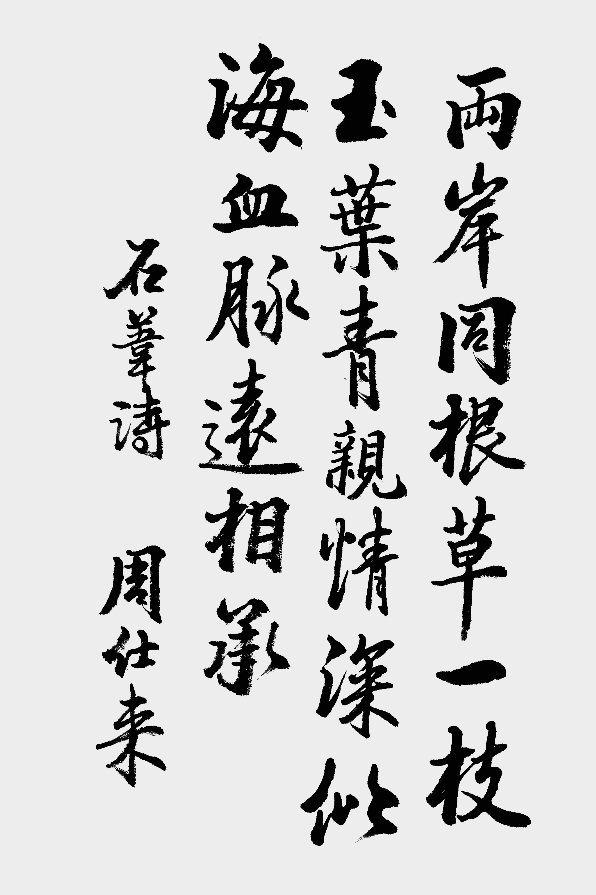 兩岸同根草一枝
玉葉青親情深似
海血脉遠相承
石葦诗 周仕来